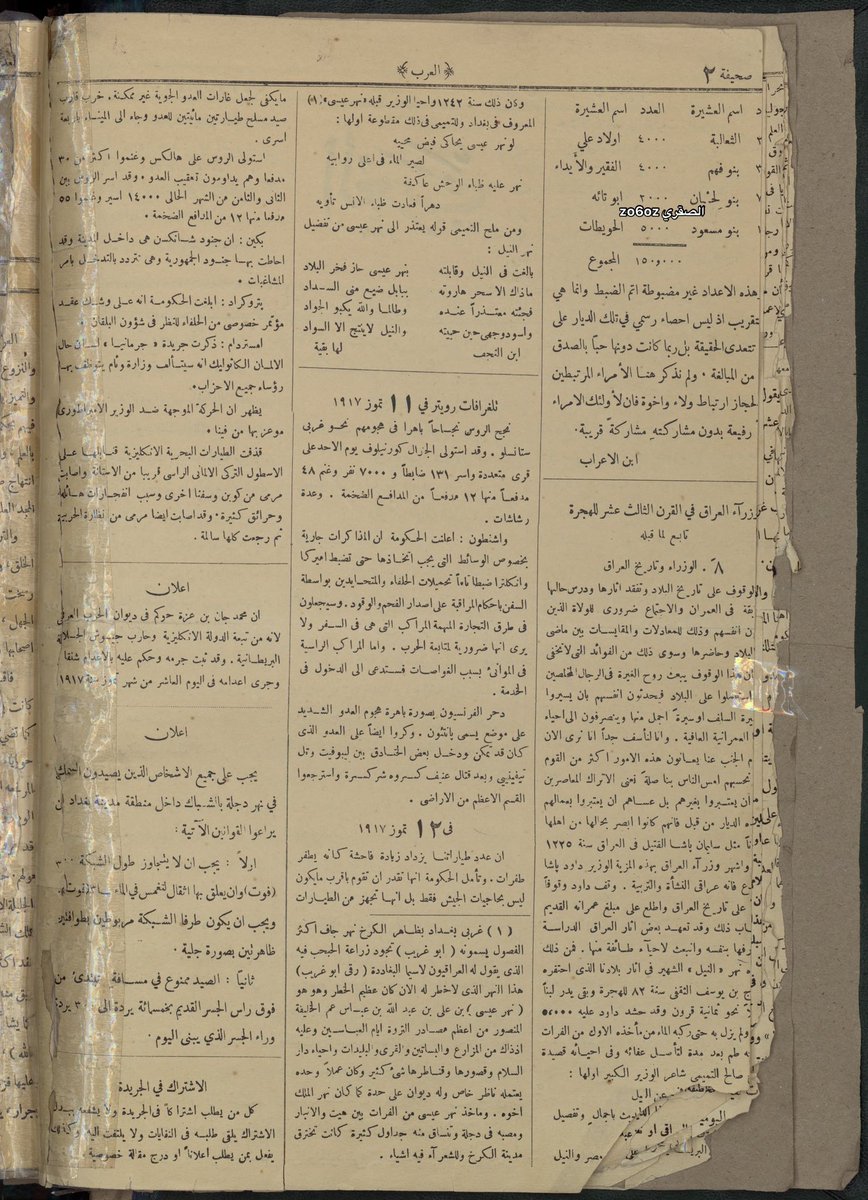 صحيفة ٢
﴿ العرب ﴾
اسم العشيرة العدد اسم العشيرة
الثعالبة ٤٠٠٠ اولاد علي
بنو فهم ٤٠٠٠ الفقير والأيداء
بنو لحيان ٢٠٠٠ ابو تائه
بنو مسعود ٥٠٠٠ الحويطات
المجموع ١٥٠٠٠٠
الصقري zo6oz
هذه الاعداد غير مضبوطة اتم الضبط وانما هي
تقريب اذ ليس احصاء رسمي في تلك الديار على
تتعدى الحقيقة بل ربما كانت دونها حباً بالصدق
من المبالغة ٠ ولم نذكر هنا الأمراء المرتبطين
لحجاز ارتباط ولاء واخوة فان لأولئك الامراء
رفيعة بدون مشاركته مشاركة قريبة ٠
ابن الاعراب
وزرآء العراق في القرن الثالث عشر للهجرة
تابع لما قبله
٨ ً . الوزراء وتاريخ العراق
الوقوف على تاريخ البلاد وتفقد اثارها ودرس حالها
في العمران والاجتماع ضروري للولاة الذين
ن انفسهم وذلك للمعادلات والمقايسات بين ماضي
البلاد وحاضرها وسوى ذلك من الفوائد التي لا تخفى
ان هذا الوقوف يبعث روح الغيرة في الرجال المخلصين
على البلاد فيحدثون انفسهم بان يسيروا
السلف او سيرة اجمل منها وينصرفون الى احياء
العمرانية العافية . وانا لنأسف جداً انا نرى الان
الجنب عنا يعانون هذه الامور اكثر من القوم
تحسبهم امس الناس بنا صلة نعنى الاتراك المعاصرين
ان يعتبروا بغيرهم بل عساهم ان يعتبروا بعمالهم
الديار من قبل فانهم كانوا ابصر بحالها من اهلها
مثل سليمان باشا القتيل في العراق سنة ١٢٢٥
واشهر وزرآء العراق بهذه المزية الوزير داود باشا
فانه عراقي النشأة والتربية . وقف داود وقوفاً
على تاريخ العراق واطلع على مبلغ عمرانه القديم
ذلك وقد تعهد بعض اثار العراق الدراسة
بنفسه وانبعث لاحياء طائفة منها . فمن ذلك
نهر « النيل » الشهير في اثار بلادنا الذي احتفره
بن يوسف الثقفي سنة ٨٢ للهجرة وبقي يدر لبناً
نحو ثمانية قرون وقد حشد داود عليه ٥٤٠٠٠
ولم يزل به حتى ركبه الماء من مأخذه الاول من الفرات
طم بعد مدة لتأصل عفائه وفي احيائه قصيدة
صالح التميمي شاعر الوزير الكبير اولها :
وكان ذلك سنة ١٢٤٢ واحيا الوزير قبله «نهر عيسى» (١)
المعروف في بغداد وللتميمي في ذلك مقطوعة اولها :
لو نهر عيسى يحاكي فيض محييه
لصير الماء في اعلى روابيه
نهر عليه ظباء الوحش عاكفة
دهراً فعادت ظباء الانس تأويه
ومن ملح التميمي قوله يعتذر الى نهر عيسى من تفضيل
نهر النيل :
بالغت في النيل وقابلته بنهر عيسى حاز فخر البلاد
ماذاك الا سحر هاروته ببابل ضيع منى السداد
فجئته معتذراً عنده وطالما والله يكبو الجواد
واسود وجهي حين حييته والنيل لا ينتج الا السواد
ابن النجف لها بقية
تلغرافات رويتر في ١١ تموز ١٩١٧
نجح الروس نجاحاً باهرا في هجومهم نحو غربي
ستانسلو . وقد استولى الجنرال كورنيلوف يوم الاحد على
قرى متعددة واسر ١٣١ ضابطاً و ٧٠٠٠ نفر وغنم ٤٨
مدفعاً منها ١٢ مدفعاً من المدافع الضخمة . وعدة
رشاشات .
واشنطون : اعلنت الحكومة ان المذاكرات جارية
بخصوص الوسائط التي يجب اتخاذها حتى تضبط اميركا
وانكلترا ضبطا تاماً تحميلات الحلفاء والمتحايدين بواسطة
السفن باحكام المراقبة على اصدار الفحم والوقود . وسيجعلون
في طرق التجارة المهمة المراكب التي هي في السفر ولا
يرى انها ضرورية لمتابعة الحرب . واما المراكب الراسية
في الموانئ بسبب الغواصات فستدعى الى الدخول في
الخدمة .
دحر الفرنسيون بصورة باهرة هجوم العدو الشديد
على موضع يسمى بانثون . وكروا ايضاً على العدو الذي
كان قد تمكن ودخل بعض الخنادق بين ليبوفيت وتل
نيفينيبي وبعد قتال عنيف كسروه شر كسرة واسترجعوا
القسم الاعظم من الاراضي .
فى ١٢ تموز ١٩١٧
ان عدد طياراتنا يزداد زيادة فاحشة كانه يطفر
طفرات . وتأمل الحكومة انها تقدر ان تقوم باقرب ما يكون
ليس بحاجيات الجيش فقط بل انها تجهز من الطيارات
(١) غربي بغداد بظاهر الكرخ نهر جاف اكثر
الفصول يسمونه ( ابو غريب ) تجود زراعة الحبحب فيه
الذي يقول له العراقيون لا سيما البغاددة ( رقي ابو غريب )
هذا النهر الذي لا خطر له الان كان عظيم الخطر وهو هو
( نهر عيسى ) بن علي بن عبد الله بن عباس عم الخليفة
المنصور من اعظم مصادر الثروة ايام العباسيين وعليه
اذذاك من المزارع والبساتين والقرى والبليدات واحياء دار
السلام وقصورها وقناطرها شئ كثير وكان عملاً وحده
يعتمله ناظر خاص وله ديوان على حدة كما كان نهر الملك
اخوه . وماخذ نهر عيسى من الفرات بين هيت والانبار
ومصبه في دجلة وتنساق منه جداول كثيرة كانت تخترق
مدينة الكرخ وللشعرآء فيه اشياء .
ما يكفي لجعل غارات العدو الجوية غير ممكنة . خرب قارب
صيد مسلح طيارتين مائيتين للعدو وجاء الى الميناء باربعة
اسرى .
استولى الروس على هالكس وغنموا اكثر من ٣٠
مدفعا وهم يداومون تعقيب العدو . وقد اسر الروس بين
الثاني والثامن من الشهر الحالى ١٤٠٠٠ اسير وغنموا ٥٥
مدفعا منها ١٢ من المدافع الضخمة .
بكين : ان جنود شانكسن هي داخل المدينة وقد
احاطت بها جنود الجمهورية وهي تتردد بالتدخل بامر
المشاغبات .
بتروكراد : ابلغت الحكومة انه على وشك عقد
مؤتمر خصوصي من الحلفاء للنظر في شؤون البلقان .
امستردام : ذكرت جريدة « جرمانيا » لسان حال
الالمان الكاثوليك انه سيتألف وزارة وئام يتوظف بها
رؤساء جميع الاحزاب .
يظهر ان الحركة الموجهة ضد الوزير الامبراطوري
موعز بها من فينا .
قذفت الطيارات البحرية الانكليزية قنابلها على
الاسطول التركي الالماني الراسي قريبا من الاستانة واصابت
مرمى من كوبن وسفنا اخرى وسبب انفجارات هائلة
وحرائق كثيرة . وقد اصابت ايضا مرمى من نظارة الحربية
ثم رجعت كلها سالمة .
اعلان
ان محمد جان بن عزة حوكم في ديوان الحرب العرفي
لانه من تبعة الدولة الانكليزية وحارب جيوش الجلالة
البريطانية . وقد ثبت جرمه وحكم عليه بالاعدام شنقا
وجرى اعدامه في اليوم العاشر من شهر تموز سنة ١٩١٧
اعلان
يجب على جميع الاشخاص الذين يصيدون السمك
في نهر دجلة بالشباك داخل منطقة مدينة بغداد ان
يراعوا القوانين الآتية :
اولاً : يجب ان لا يتجاوز طول الشبكة ٣٠٠
(فوت) وان يعلق بها اثقال لتغمس في الماء
ويجب ان يكون طرفا الشبكة مربوطين بطوافتين
ظاهرتين بصورة جلية .
ثانياً : الصيد ممنوع في مسافة تبتدئ من
فوق راس الجسر القديم بخمسمائة يردة الى ٣٠٠ يردة
وراء الجسر الذي يبنى اليوم .
الاشتراك في الجريدة
كل من يطلب اشتراكا في الجريدة ولا يشفعه ببدل
الاشتراك يلقى طلبه في النفايات ولا يلتفت اليه وكذلك
يفعل بمن يطلب اعلاناً او درج مقالة خصوصية